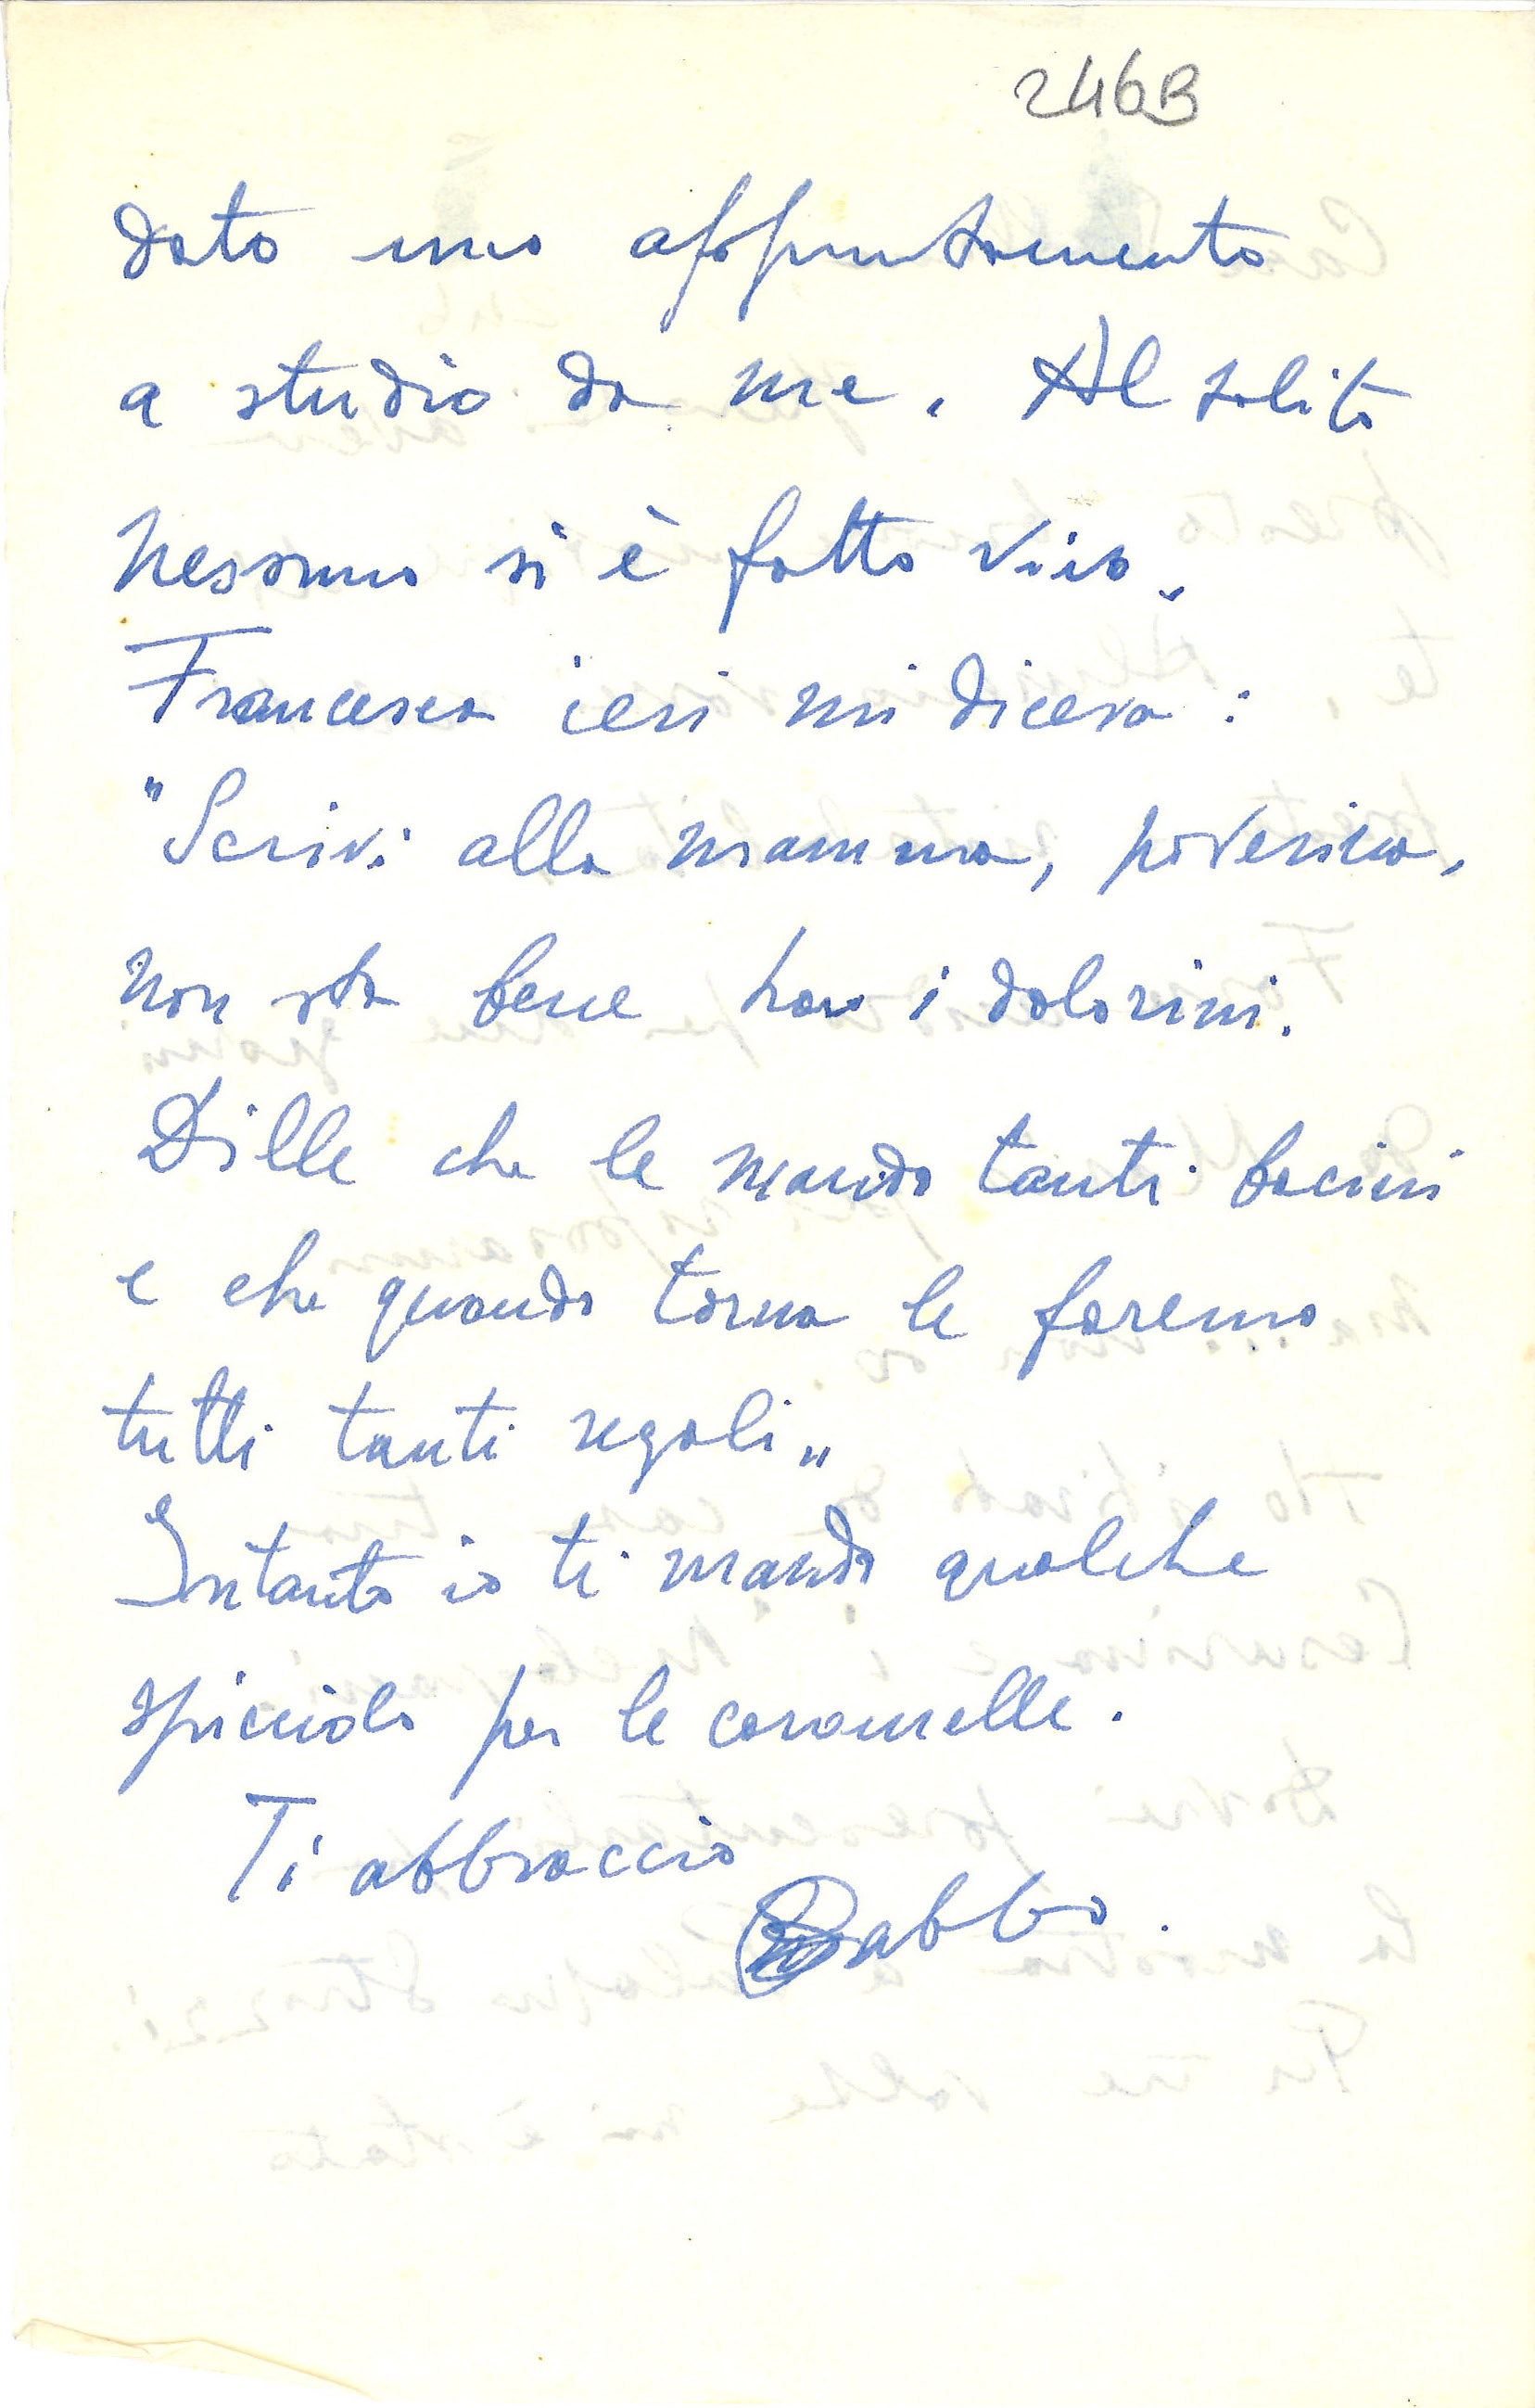 246B
dato uno appuntamento
a studio da me. Al solito
nessuno si è fatto vivo.
Francesca ieri mi diceva:
"Scrivi alla mamma, poverina,
non sta bene ha i dolorini.
Dille che le mando tanti bacini
e che quando torna le faremo
tutti tanti regali"
Intanto io ti mando qualche
spicciolo per le caramelle.
Ti abbraccio
Babbo.